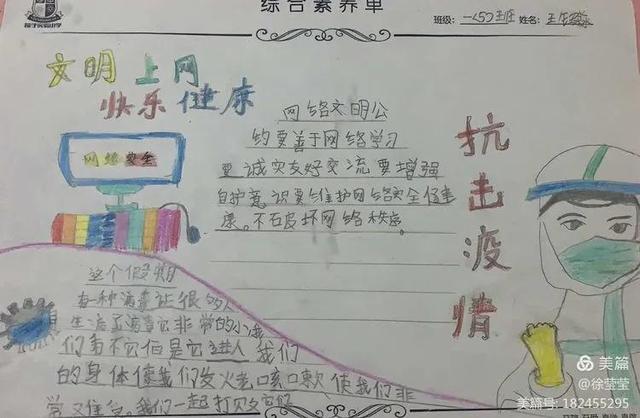 综合素养单
班级: 一(5)班 姓名:
文明上网
快乐健康
网络安全
网络文明公
约要善于网络学习
要诚实友好交流要增强
自护意识要维护网络安全健
康。不石皮坏网络秩序。
抗击疫情
这个假期
有一种病毒让很多人
生活
们看不它但是它进入我们
的身体使我们发火老口亥口欶使我们非
我们一起打
美篇
@徐莹莹
美篇号: 182455295